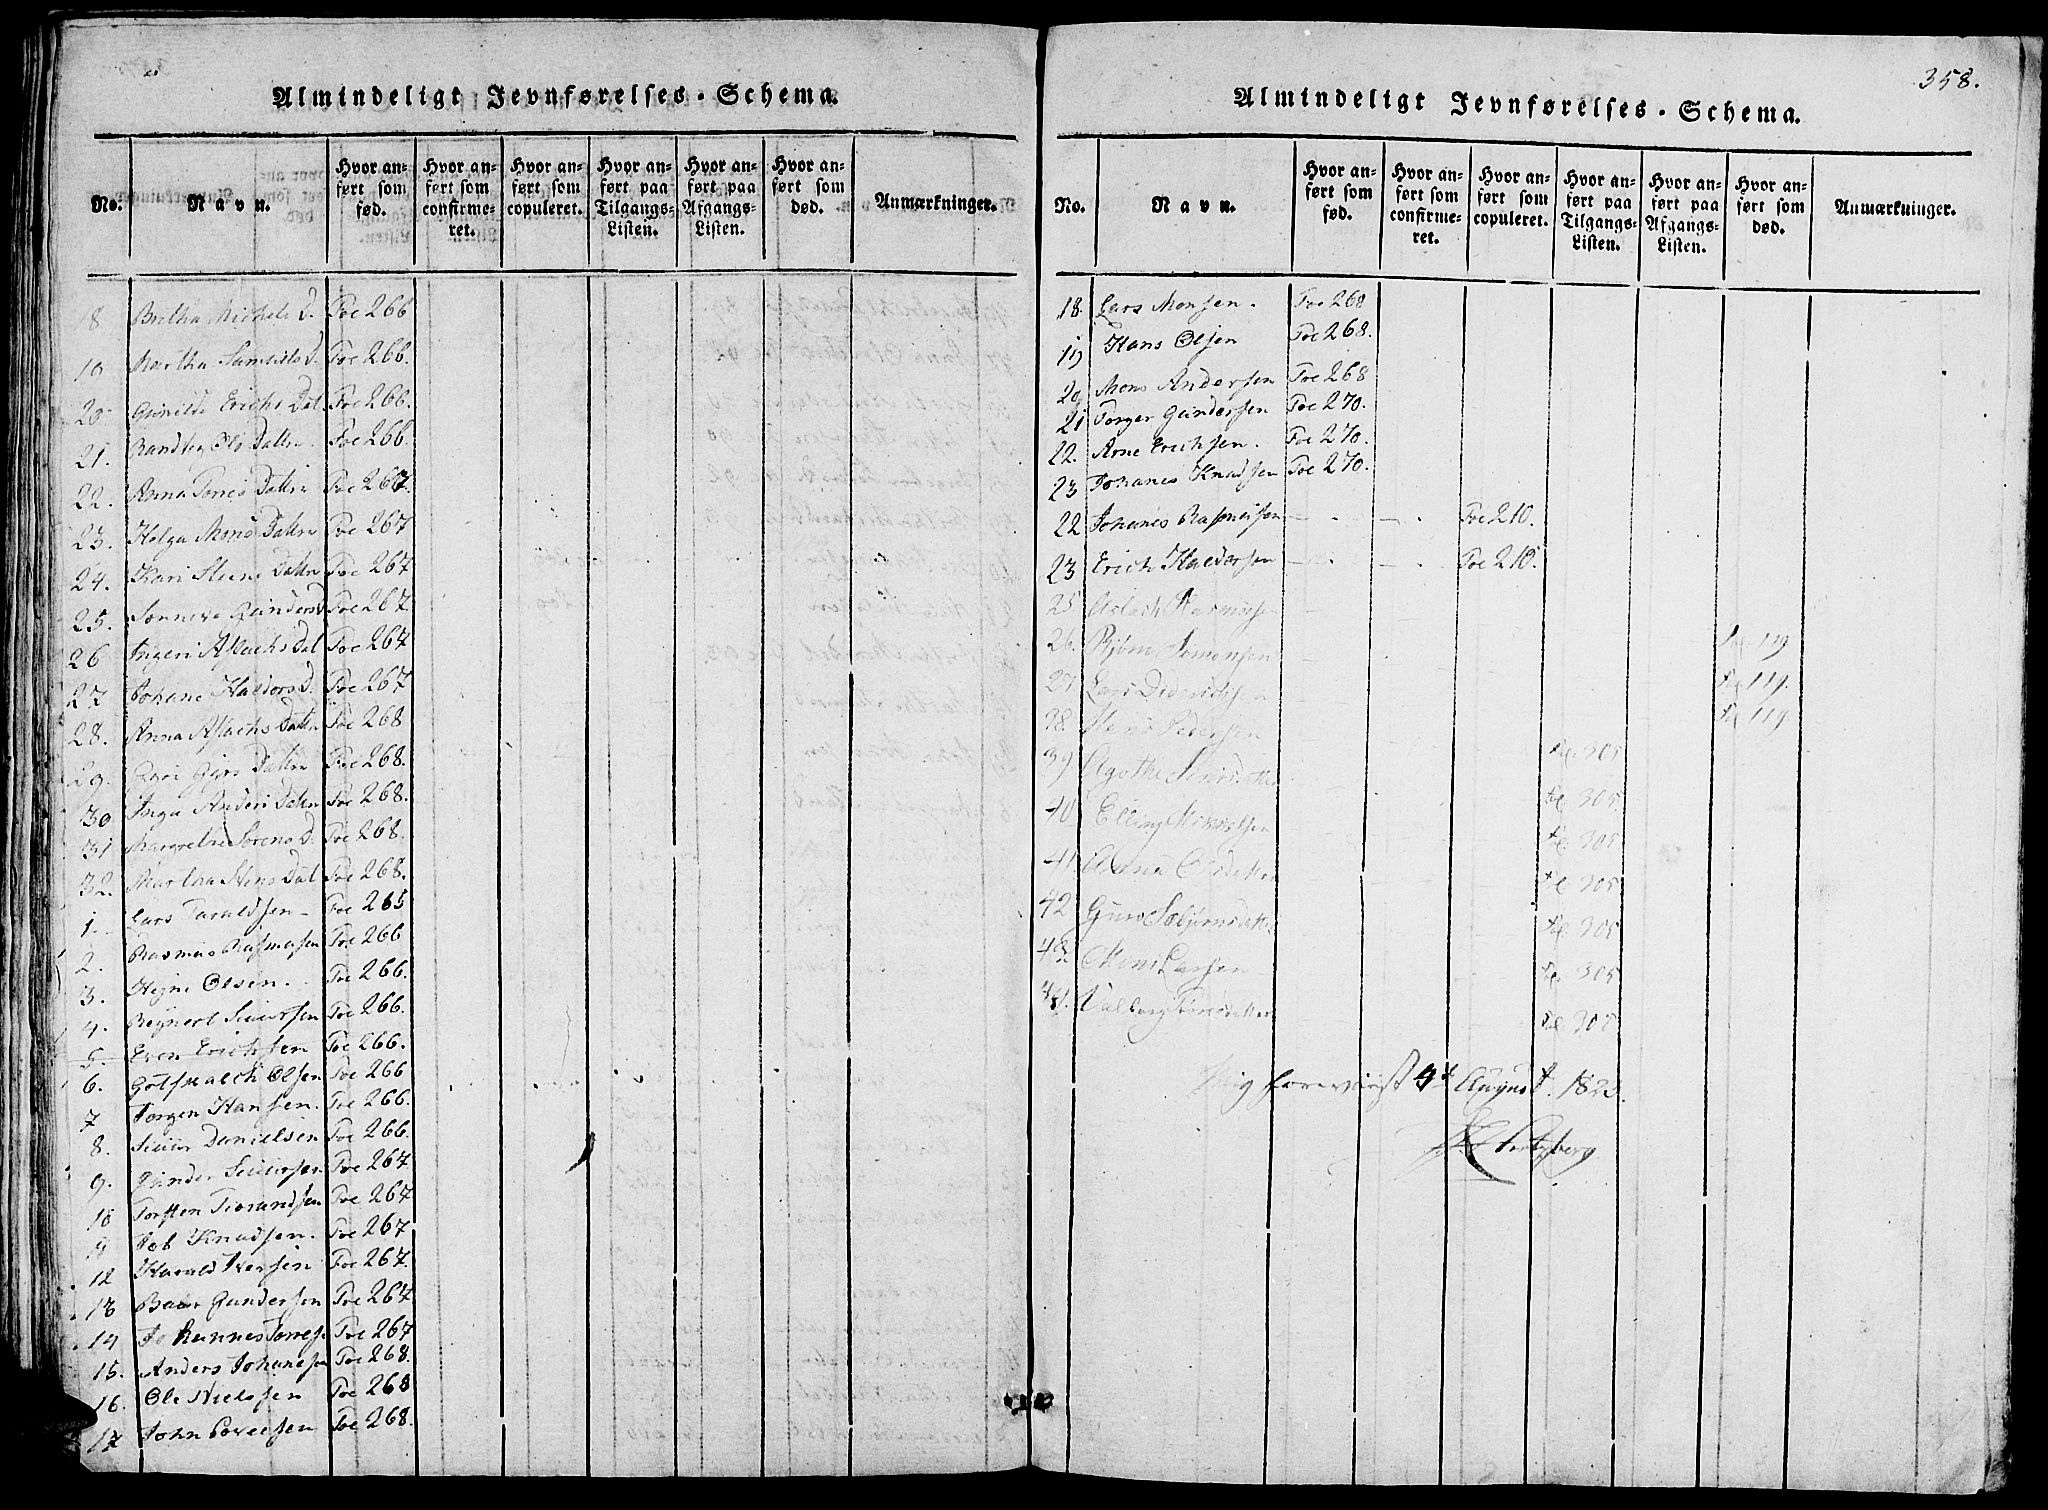 Almindeligt Jevnførelses-Schema.
No.
Navn.
Hvor anført som fød.
Hvor anført som confirmeret.
Hvor anført som copuleret.
Hvor anført paa Tilgangs-Listen.
Hvor anført paa Afgangs-Listen.
Hvor anført som død.
Anmærkninger.
18 Britha Michels D. Foe 266
19 Martha Samuels D. Foe 266.
20 Gunilde Erichs Dat. Foe 266.
21. Randvey Ols Dattr. Foe 266
22. Anna Tores Dattr Foe 267.
23. Helga Mons Dattr Foe 267
24. Kari Steens Dattr Foe 267
25. Sonneva Gunders D Foe 267.
26 Ingeri Aslachs Dat Foe 267
27 Johane Haldors D. Foe 267
28. Anna Aslachs Dattr Foe 268
29. Dattr Foe 268.
30 Inga Anders Datter Foe 268.
31 Margrethe Sorens D. Foe 268.
32. Martha Stens Dat Foe 268.
1. Lars Taraldsen Foe 265
2. Rasmus Rasmusen Foe 266
3. Heyne Olsen. Foe 266.
4. Reynert Siversen Foe 266.
5. Even Erichsen Foe 266.
6. Gotskalch Olsen Foe 266
7 Jørgen Hansen. Foe 266.
8. Siver Danielsen Foe 266.
9. Gunder Siversen Foe 267
10 Torsten Tiorandsen Foe 267
9 Job Knudsen. Foe 267
12 Harald Iversen Foe 267.
13 Baar Gundersen Foe 267
14 Johannes Torres. Foe 267
15. Anders Johanesen Foe 268.
16. Ole Nielssen Foe 268
17 John Poveelsen Foe 268.
358.
Almindeligt Jevnførelses-Schema.
No.
Navn.
Hvor anført som fød.
Hvor anført som confirmeret.
Hvor anført som copuleret.
Hvor anført paa Tilgangs-Listen.
Hvor anført paa Afgangs-Listen.
Hvor anført som død.
Anmærkninger.
18. Lars Monsen. Foe 268
19 Hans Olsen Foe 268.
20 Mons Andersen Foe 268
21 Torger Gundersen Foe 270.
22. Arne Erichsen. Foe 270.
23 Johanes Knudsen Foe 270.
22 Johanes Rasmusen Foe 210.
23 Erich Haldorsen Foe 210.
25 Aslach Rasmusen
26. Biørn Simonsen Fol 119
27. Lars Diderichsen Fol 119.
38. Mons Pedersen Fol 119
39 Agathe Fol. 305
40 Elling Fol. 305
41. Anna Olsdatter Fol. 305
42 Guro Fol. 305
43. Mons Larsen Fol. 305
44. Valborg Fol. 305
Mig foreviist 4de August. 1823.